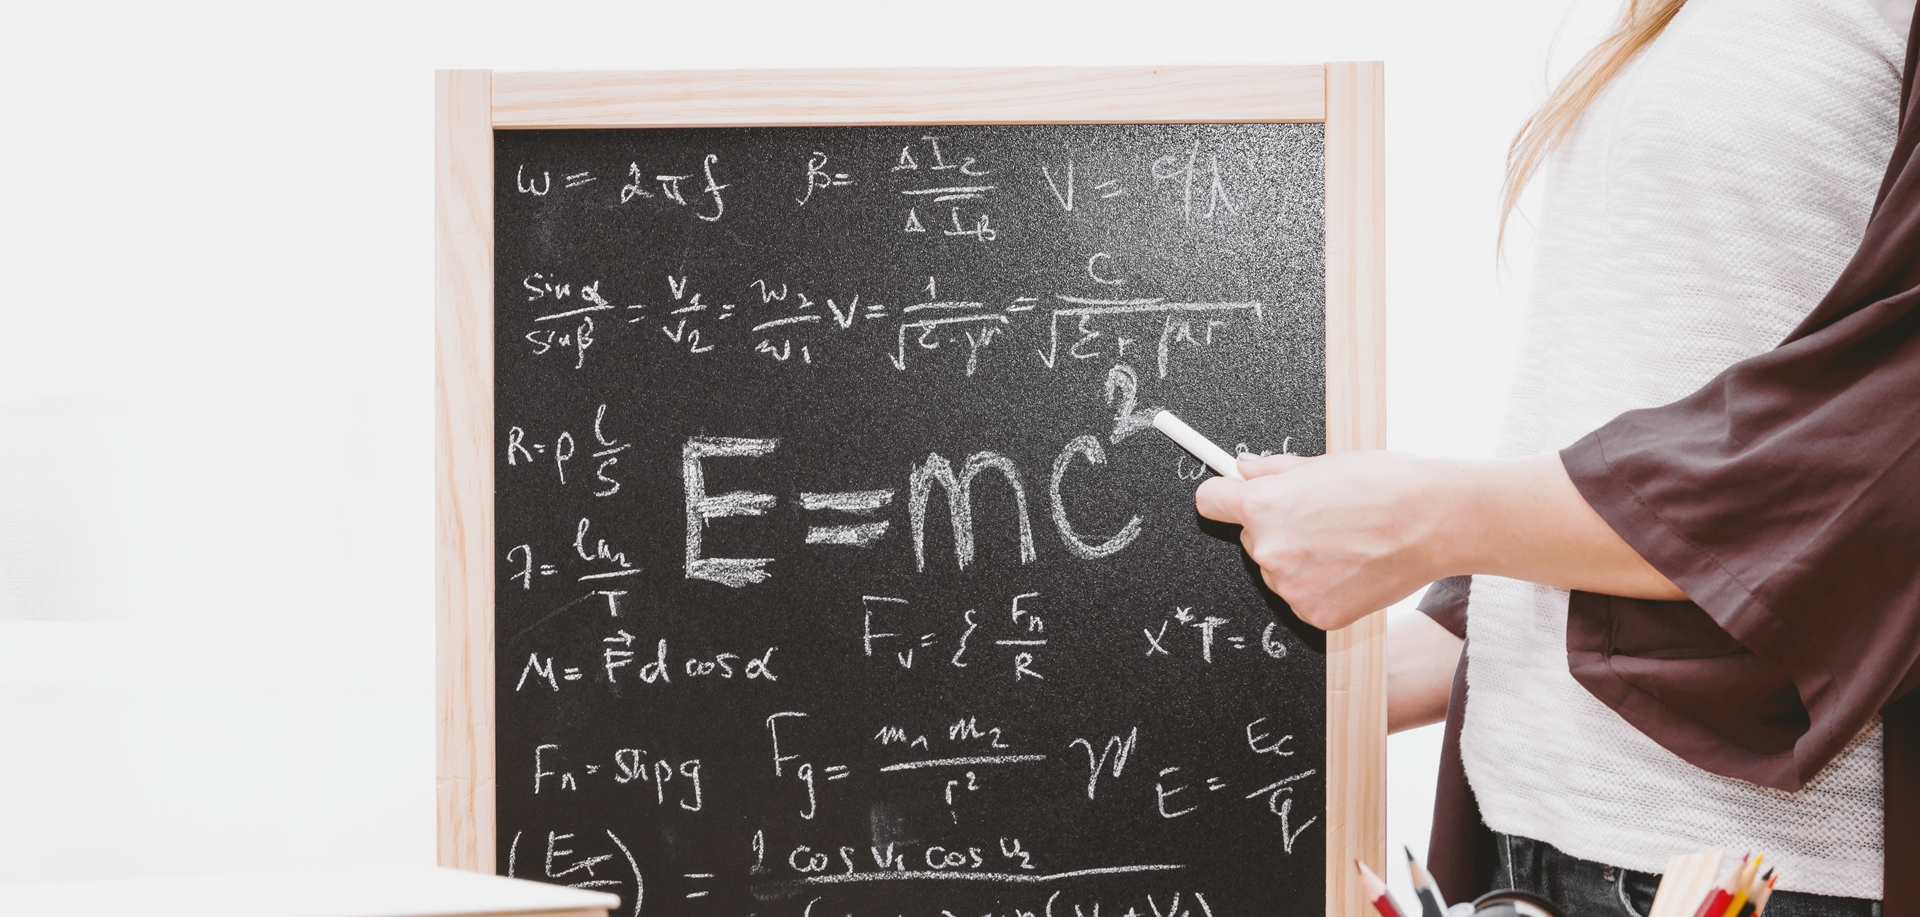 ω = 2πf β = ΔI_C / ΔI_B V = c/λ
sin α / sin β = v_1 / v_2 = w_2 / w_1 V = 1 / √(ε·μ) = C / √(ε_r μ_r)
R = ρ l / S
E = mc²
λ = ln_2 / T
F_v = { F_n / R x*T = 6
M = F⃗ d cos α
F_n = Shρg F_g = m_1 m_2 / r² E = E_C / q
2 cos v_1 cos v_2
=